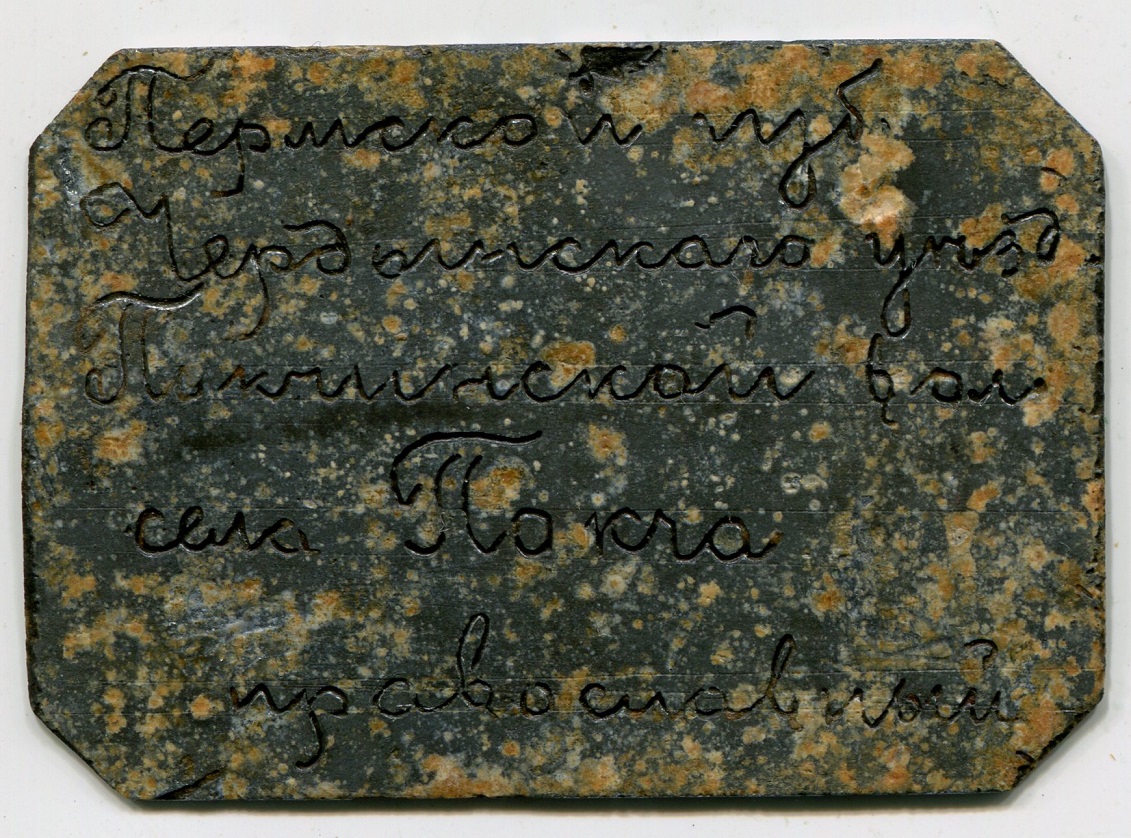 Пермской губ.
Чердынскаго уѣзд.
Покчинской вол.
села Покча
православный